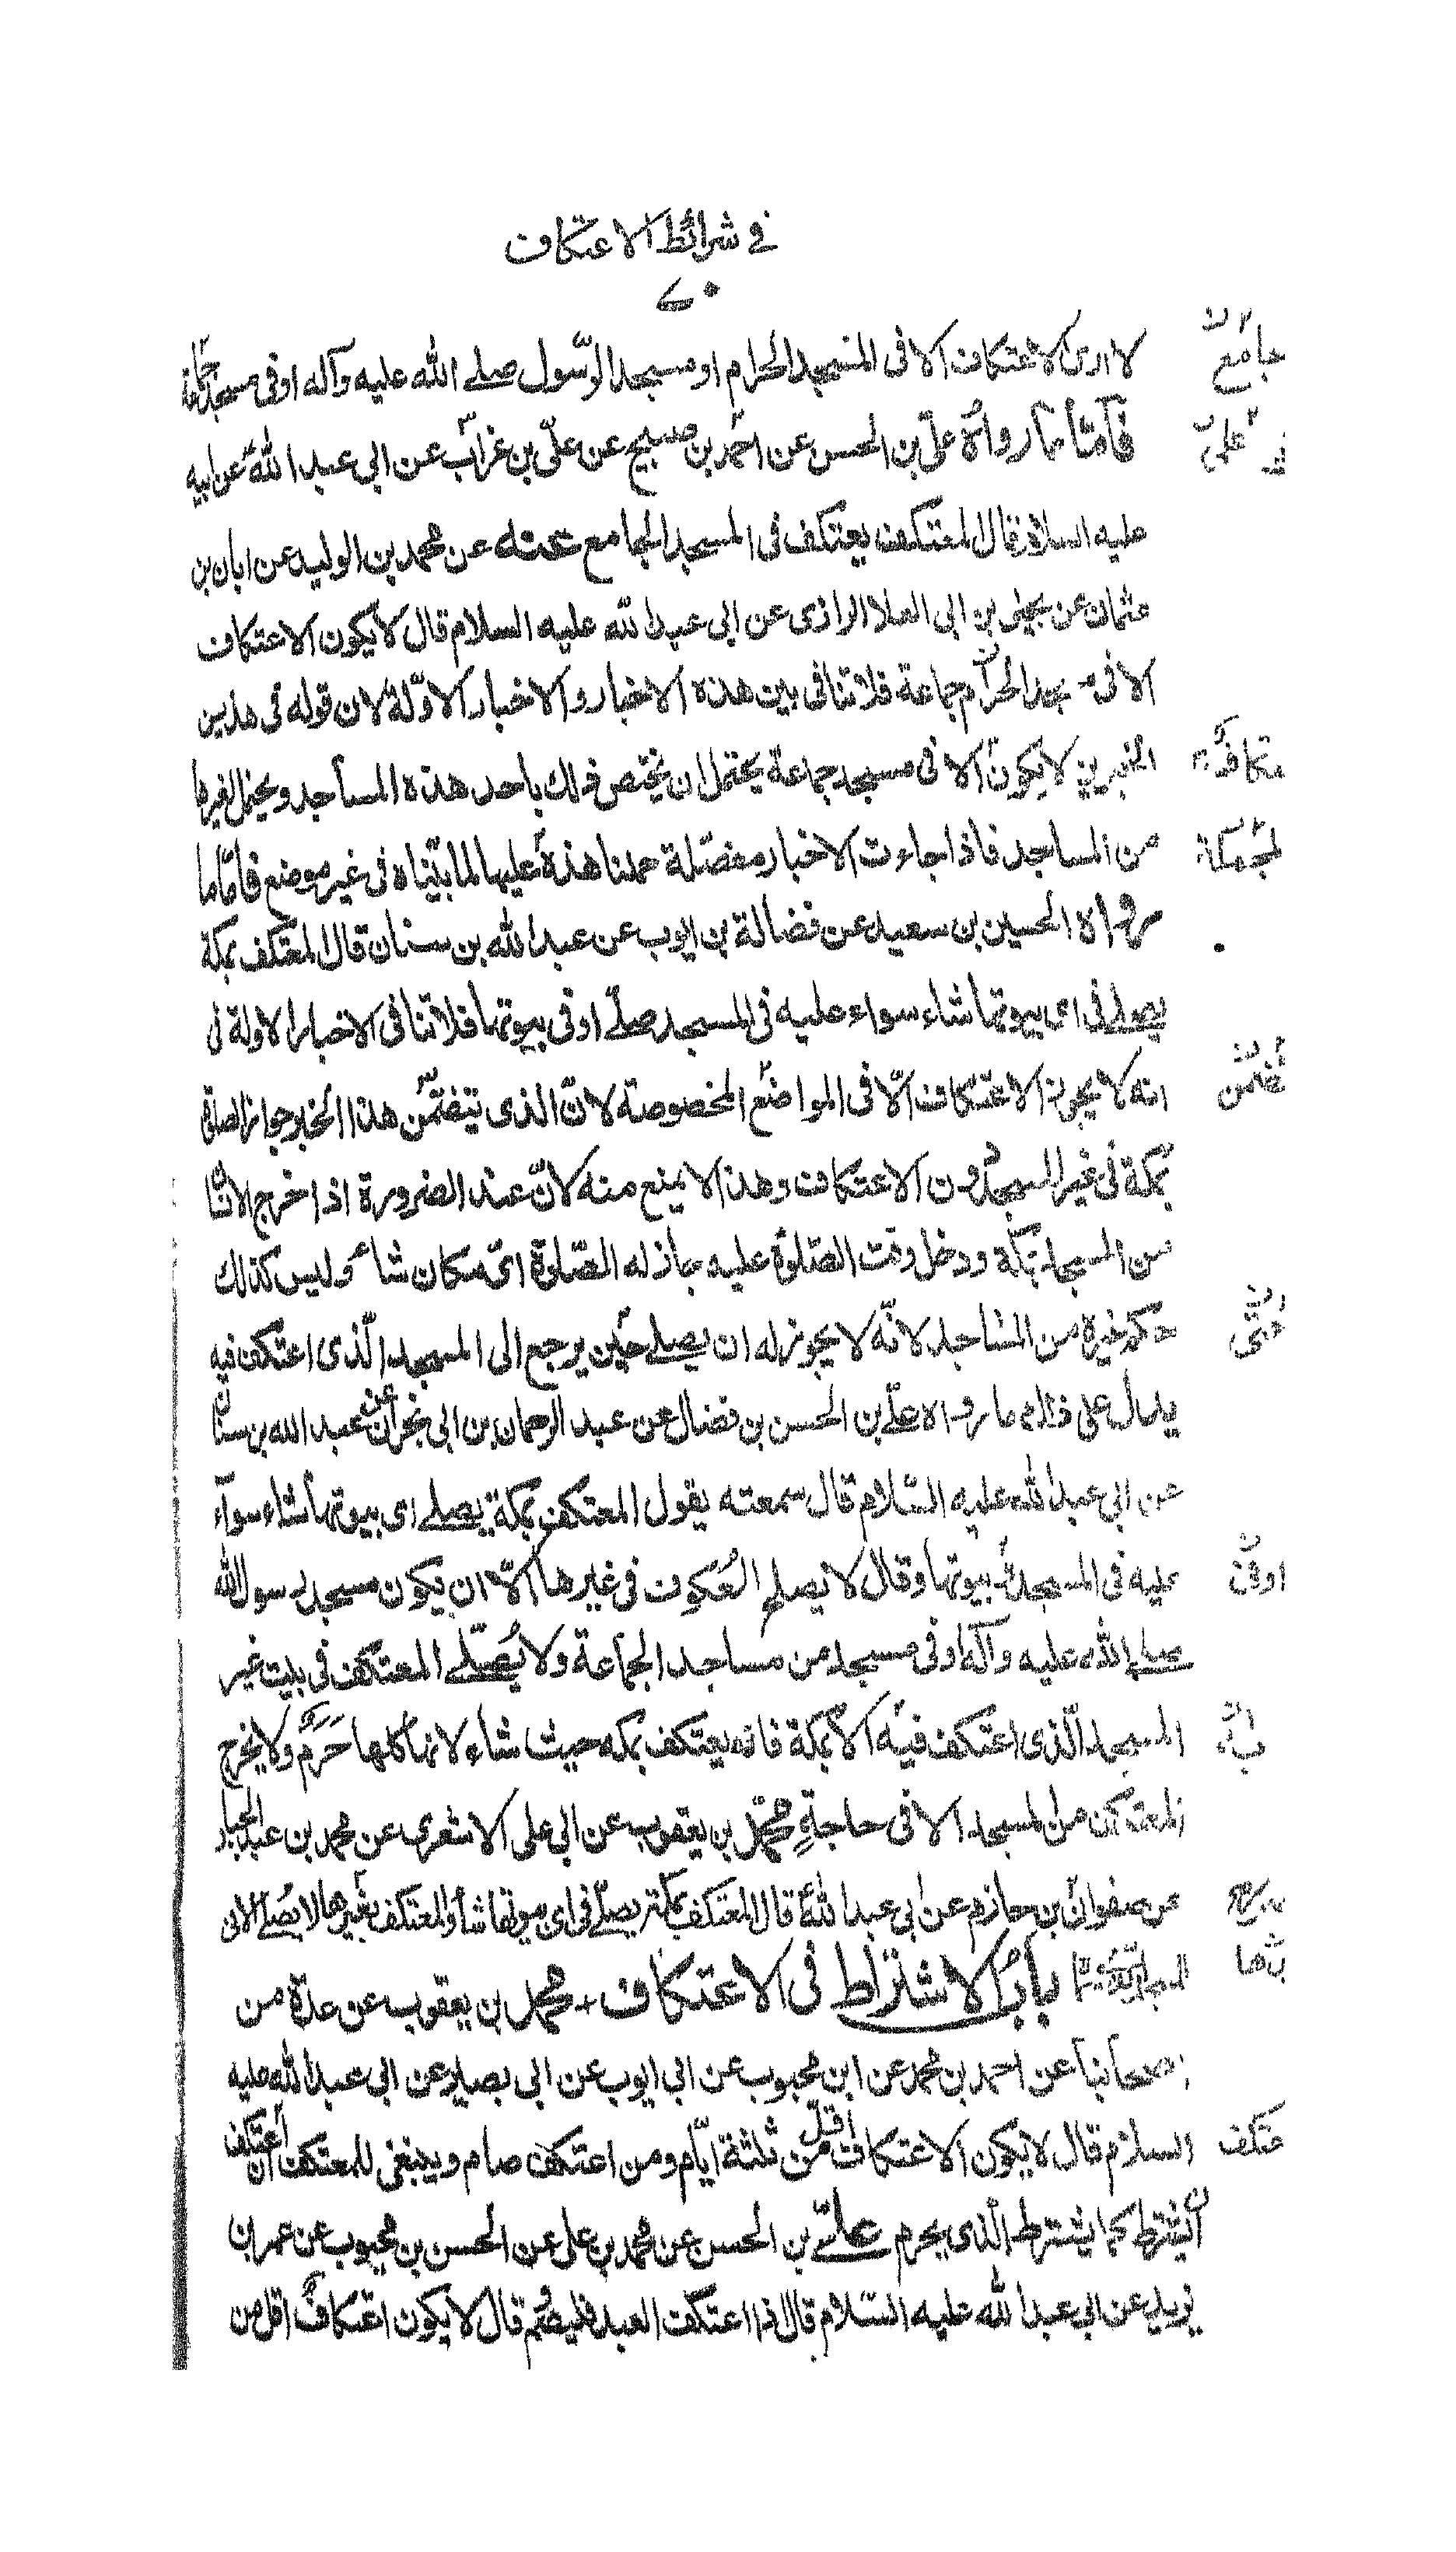 في شرائط الاعتكاف
لا ارى الاعتكاف الا فى المسجد الحرام او مسجد الرّسول صلے الله عليه وآله اوفى مسجد جامع
جامع
فامّا ما رواه علىّ بن الحسن عن احمد بن صبيح عن علىّ بن غراب عن ابي عبد الله عن ابيه
على
عليه السلام قال المعتكف يعتكف فى المسجد الجامع عنه عن محمد بن الوليد عن ابان بن
عثمان عن يحيى بن ابي العلا الرازى عن ابي عبد الله عليه السلام قال لا يكون الاعتكاف
الا فى جماعة فلا تنافى بين هذه الاخبار والاخبار الاوّلة لان قوله فى هذين
الخبرين لا يكون الا فى مسجد جماعة يحتمل ان يختص ذلك باحد هذه المساجد ويحتمل لغيرها
من المساجد فاذا جاءت الاخبار مفصّلة حملنا هذه عليها لما بيّناه فى غير موضع فامّا ما
رواه الحسين بن سعيد عن فضالة بن ايوب عن عبد الله بن سنان قال المعتكف بمكة
يصلے فى اى بيوتها شاء سواء عليه فى المسجد صلّے او فى بيوتها فلا تنافى الاخبار الاولة فى
انه لا يجوز الاعتكاف الّا فى المواضع المخصوصة لانّ الذى يتضمّن هذا الخبر جواز الصلوة
تضمن
بمكة فى غير المسجد دون الاعتكاف وهذا لا يمنع منه لانّ عند الضرورة اذا خرج الانسان
من المسجد بمكة ودخل وقت الصّلوة عليه جاز له الصّلوة اىّ مكان شاء وليس كذلك
حكم غيره من المساجد لانّه لا يجوز له ان يصلے حتّى يرجع الى المسجد الّذى اعتكف فيه
حتى
يدل على ذلك ما رواه علىّ بن الحسن بن فضال عن عبد الرحمان بن ابي نجران عن عبد الله بن سنان
عن ابي عبد الله عليه السّلام قال سمعته يقول المعتكف بمكة يصلے اى بيوتها شاء سوآء
عليه فى المسجد او فى بيوتها وقال لا يصلح العُكوف فى غيرها الّا ان يكون مسجد رسول الله
اوفى
صلے الله عليه وآله اوفى مسجد من مساجد الجماعة ولا يُصلّے المعتكف فى بيت غير
المسجد الّذى اعتكف فيه الّا بمكة فانه يعتكف بمكه حيث شاء لانها كلها حَرَم ولا يخرج
المعتكف من المسجد الا فى حاجةٍ محمّد بن يعقوب عن ابي على الاشعرى عن محمد بن عبد الجبار
عن صفوان بن حازم عن ابي عبد الله قال المعتكف بمكة يصلّے فى اى بيوتها شاء والمعتكف بغيرها لا يصلّے الا فى
المسجد بابُ الاشتراط فى الاعتكاف محمد بن يعقوب عن عدّة من
اصحابنا عن احمد بن محمد عن ابن محبوب عن ابي ايوب عن ابي بصير عن ابي عبد الله عليه
السلام قال لا يكون الاعتكاف اقلّ من ثلثة ايّام ومن اعتكف صام وينبغى للمعتكف اذا اعتكف
ان يشترط كما يشترط الّذى يحرم علىّ بن الحسن عن محمد بن على عن الحسن بن محبوب عن عمر بن
يزيد عن ابي عبد الله عليه السّلام قال اذا اعتكف العبد فليصم قال لا يكون اعتكاف اقل من